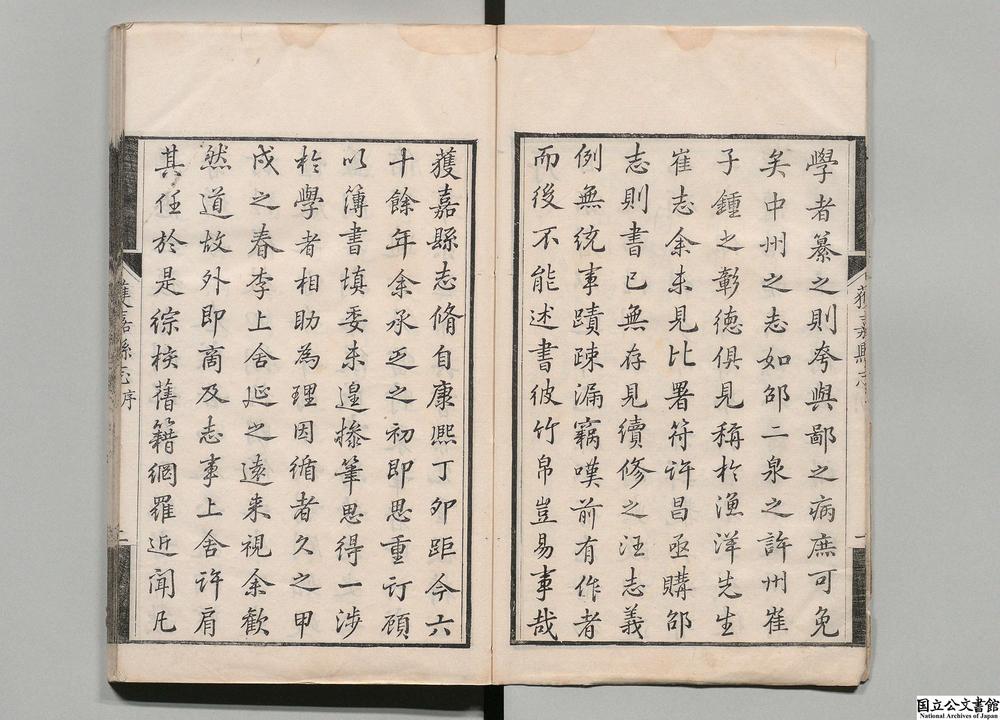 學者纂之則夸與鄙之病庶可免
矣中州之志如邵二泉之許州崔
子鍾之彰德俱見稱於漁洋先生
崔志余未見比署符許昌亟購邵
志則書已無存見續修之汪志義
例無統事蹟踈漏竊嘆前有作者
而後不能述書彼竹帛豈易事哉
獲嘉縣志脩自康熙丁夘距今六
十餘年余承乏之初即思重訂顧
以簿書填委未遑搽筆思得一涉
於學者相助為理因循者久之甲
戌之春李上舍延之遠来視余歡
然道故外即商及志事上舍許肩
其任於是綜核舊籍網羅近聞凡
獲嘉縣志
獲嘉縣志 序
二
国立公文書館
National Archives of Japan